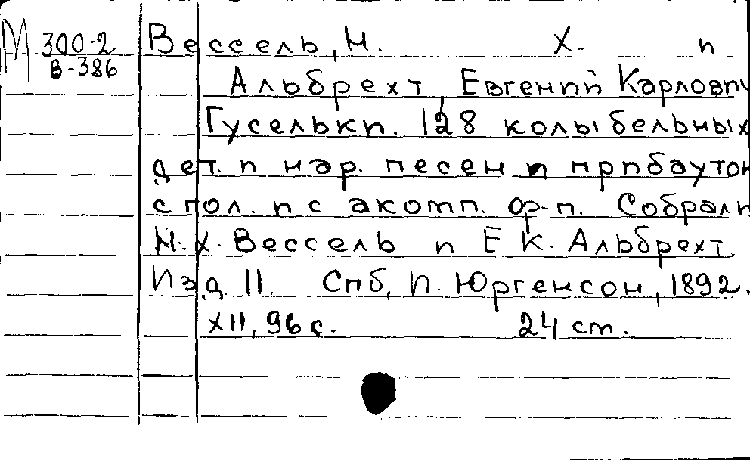 М 300-2
В-386
Вессель, Н. Х. и
Альбрехт, Евгений Карлови
Гусельки. 128 колыбельных
дет. и нар. песен и прибауток
с пол. и с акомп. ф-п. Собрали
Н. Х. Вессель и Е К. Альбрехт
Изд. II. Спб, П. Юргенсон, 1892.
XII, 96 с. 24 см.